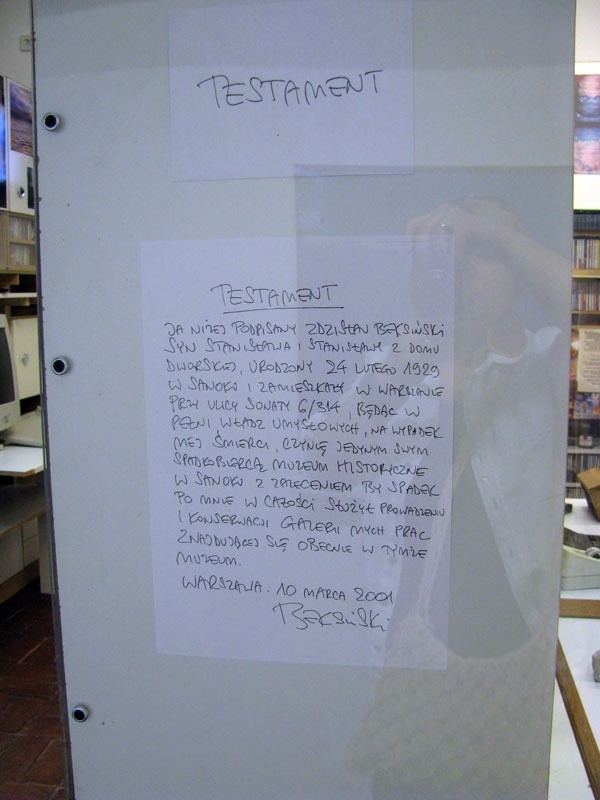 TESTAMENT
TESTAMENT
JA NIŻEJ PODPISANY ZDZISŁAW BEKSIŃSKI
SYN STANISŁAWA I STANISŁAWY Z DOMU
DWORSKIEJ, URODZONY 24 LUTEGO 1929
W SANOKU I ZAMIESZKAŁY W WARSZAWIE
PRZY ULICY SONATY 6/314, BĘDĄC W
PEŁNI WŁADZ UMYSŁOWYCH, NA WYPADEK
MEJ ŚMIERCI, CZYNIĘ JEDYNYM SWYM
SPADKOBIERCĄ MUZEUM HISTORYCZNE
W SANOKU Z ZALECENIEM BY SPADEK
PO MNIE W CAŁOŚCI SŁUŻYŁ PROWADZENIU
I KONSERWACJI GALERII MYCH PRAC
ZNAJDUJĄCEJ SIĘ OBECNIE W TYMŻE
MUZEUM.
WARSZAWA: 10 MARCA 2001
BEKSIŃSKI